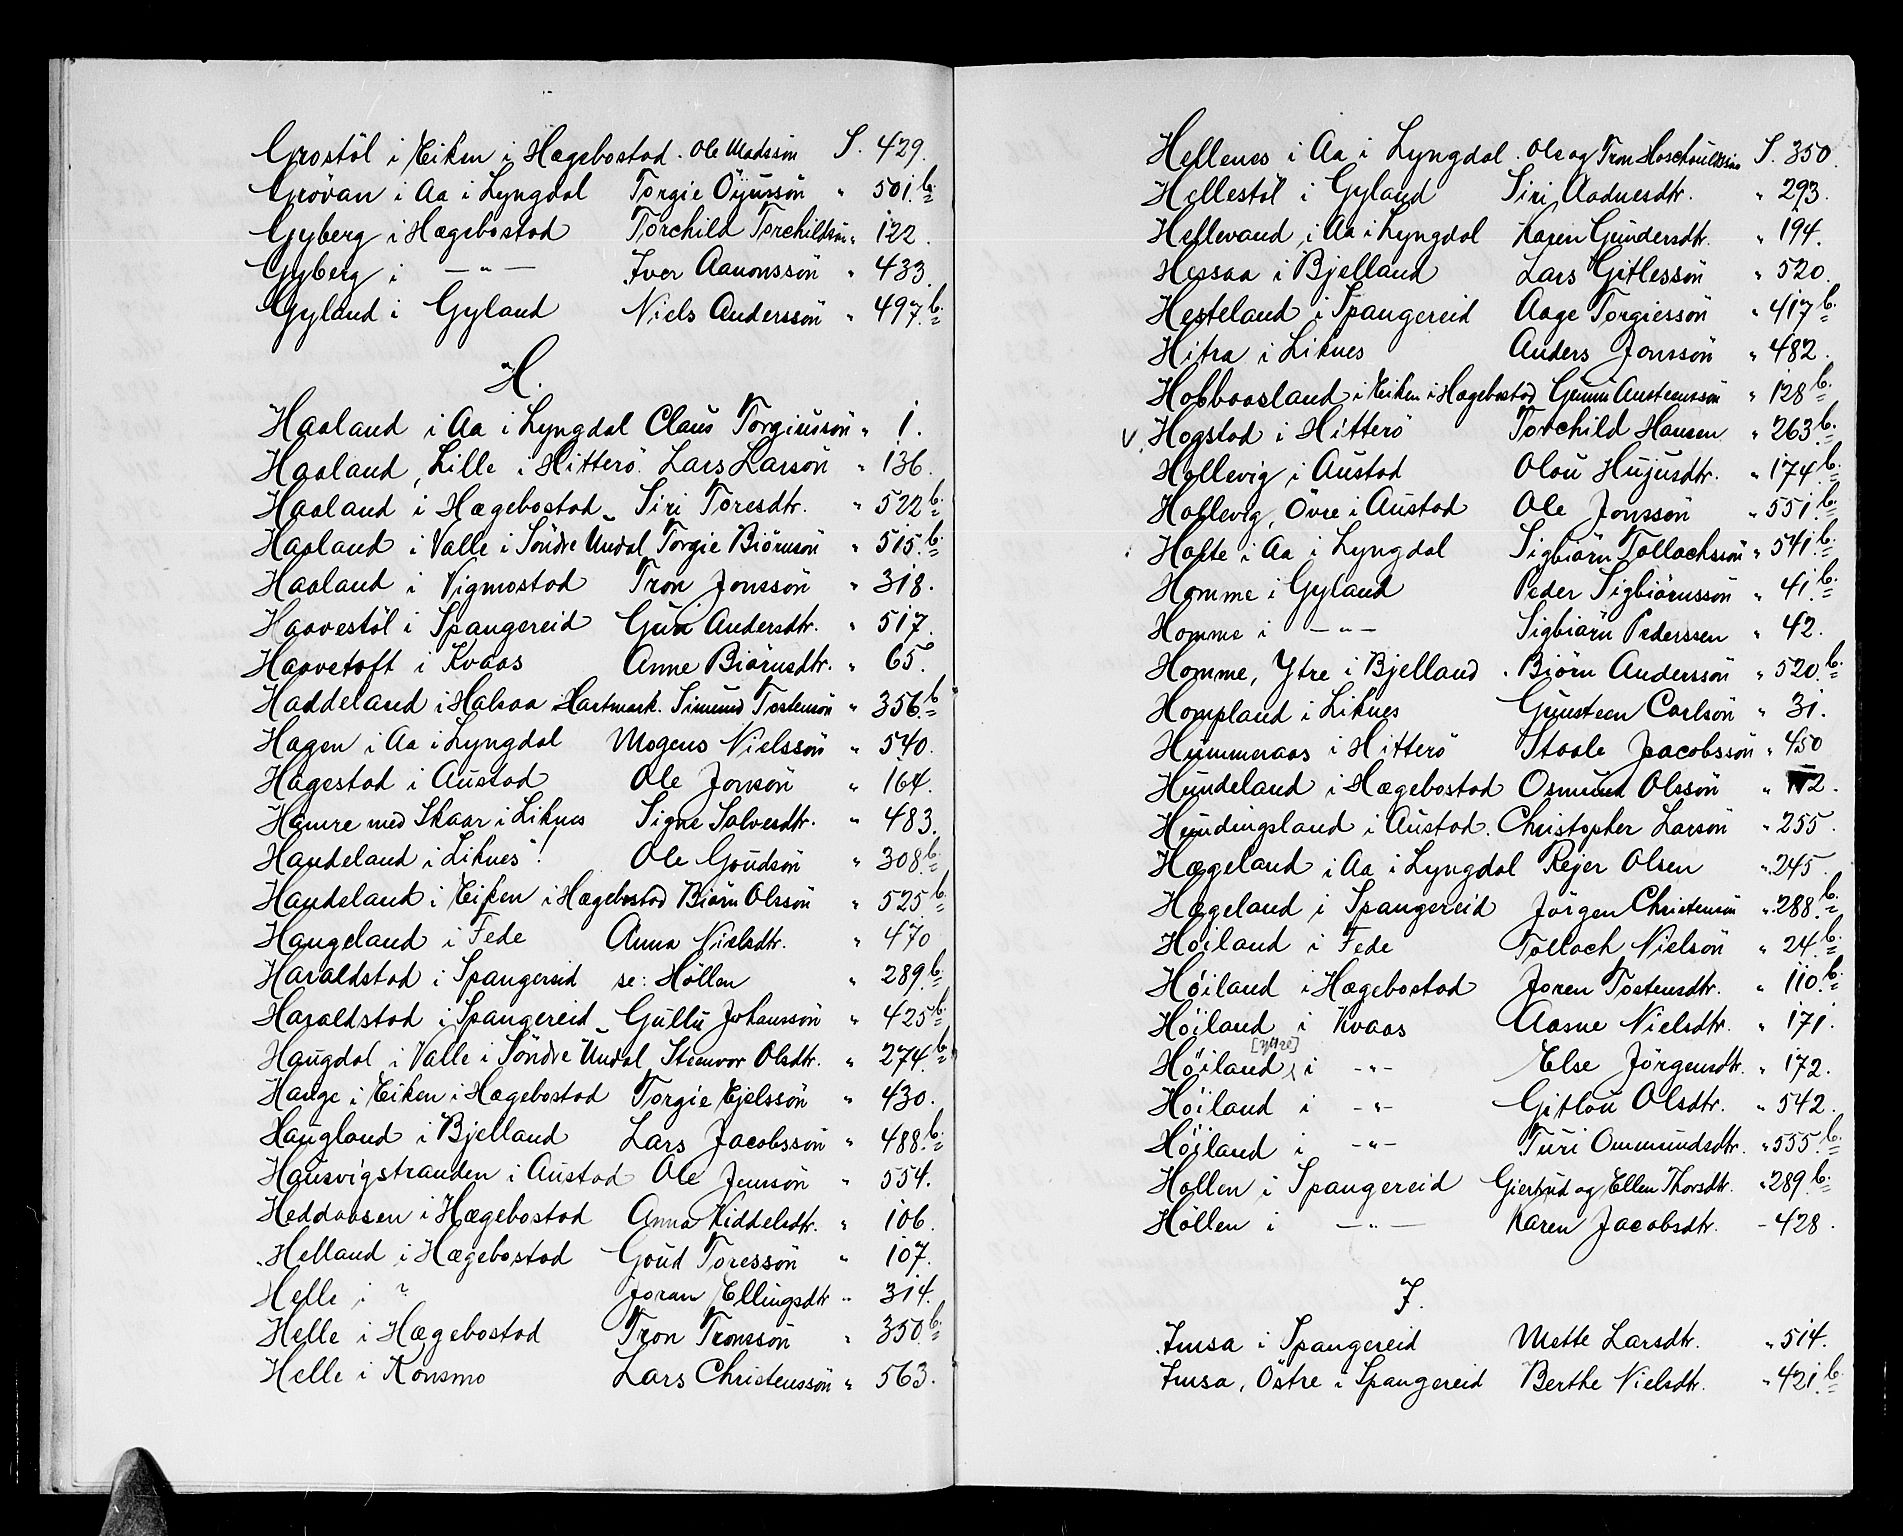 Grostöl i Eiken i Hægebostad. Ole Madssön S. 429.
Grövan i Aa i Lyngdal Torgie Öÿusson " 501.b.
Gyberg i Hægebostad Torchild Torchildsön " 122.
Gyberg i — " — Iver Aanonssön " 433.
Gyland i Gyland Niels Anderssön " 497.b.
H.
Haaland i Aa i Lyngdal Claus Torgiussön " 1.
Haaland, Lille i Hitterö. Lars Larsön " 136.
Haaland i Hægebostad Siri Toresdtr. " 522 b.
Haaland i Valle i Söndre Undal Torgie Biörnsön " 515.b.
Haaland i Vigmostad Tron Jonssön " 318.
Haavestöl i Spangereid Guri Andersdtr. " 517.
Haavetoft i Kvaas Anne Biörnsdtr. " 65.
Haddeland i Halsaa Hartmark. Simund Tostensön " 356.b.
Hagen i Aa i Lyngdal Mogens Nielssön " 540.
Hagestad i Austad Ole Jonsön " 164.
Hamre med Skaar i Liknes Signe Salvesdtr. " 483.
Handeland i Liknes! Ole Goudsön " 308.b.
Handeland i Eiken i Hægebostad Biörn Olssön " 525 b.
Hangeland i Fede Anna Nielsdtr. " 470
Haraldstad i Spangereid se: Höllen " 289.b.
Haraldstad i Spangereid Gullu Johanssön " 425 b.
Haugdal i Valle i Söndre Undal Steinvor Olsdtr. " 274.b.
Hauge i Eiken i Hægebostad Torgie Ejelssön " 430.
Haugland i Bjelland Lars Jacobssön " 488.b.
Hausvigstranden i Austad Ole Jenssön " 554.
Heddaasen i Hægebostad Anna Kiddelsdtr. " 106.
Helland i Hægebostad Goud Toressön " 107.
Helle i ? Joran Ellingsdtr " 314.
Helle i Hægebostad Tron Tronssön " 350.b.
Helle i Konsmo Lars Christenssön " 563.
Hellenes i Aa i Lyngdal. Ole og Tron S. 350.
Hellestöl i Gyland Siri Aadnesdtr. " 293.
Hellevand i Aa i Lyngdal Karen Gundersdtr. " 194.
Hessaa i Bjelland Lars Gitlessön " 520.
Hesteland i Spangereid Aage Torgierssön " 417 b.
Hitra i Liknes Anders Jonssön " 482.
Hobbaasland i Eiken i Hægebostad Gunni Austenssön " 128 b.
V. Hogstad i Hitterö Torchild Hansen " 263.b.
Hollevig i Austad Olou Hujusdtr. " 174.b.
Hollevig, Övre i Austad Ole Jonssön " 551.b.
Holte i Aa i Lyngdal Sigbiörn Tollachssön " 541.b.
Homme i Gyland Peder Sigbiörnssön " 41.b.
Homme i — " — Sigbiörn Pederssen " 42.
Homme, Ytre i Bjelland. Biörn Anderssön " 520.b.
Hompland i Liknes Gunsteen Carlsön " 31.
Hummeraas i Hitterö Staale Jeacobssön " 450
Hundeland i Hægebostad Osmund Olssön
Hundingsland i Austad. Christopher Larsön " 255.
Hægeland i Aa i Lyngdal Rejer Olsen " 245.
Hægeland i Spangereid Jörgen Christensön " 288.b.
Höiland i Fede Tollach Nielsön " 24.b.
Höiland i Hægebostad Joren Tostensdtr. " 110.b.
Höiland i Kvaas Aasne Nielsdtr. " 171.
Höiland [ytre] i - " - Else Jörgensdtr. " 172.
Höiland i - " - Gitlou Olsdtr. " 542.
Höiland i - " - Turi Ommundsdtr. " 555.b.
Höllen i Spangereid Giertrud og Ellen Thorsdtr. " 289.b.
Höllen i — " — Karen Jacobsdtr. - 428.
I.
Imsa i Spangereid Mette Larsdtr. " 514.
Imsa, Östre i Spangereid Berthe Nielsdtr. " 421.b.